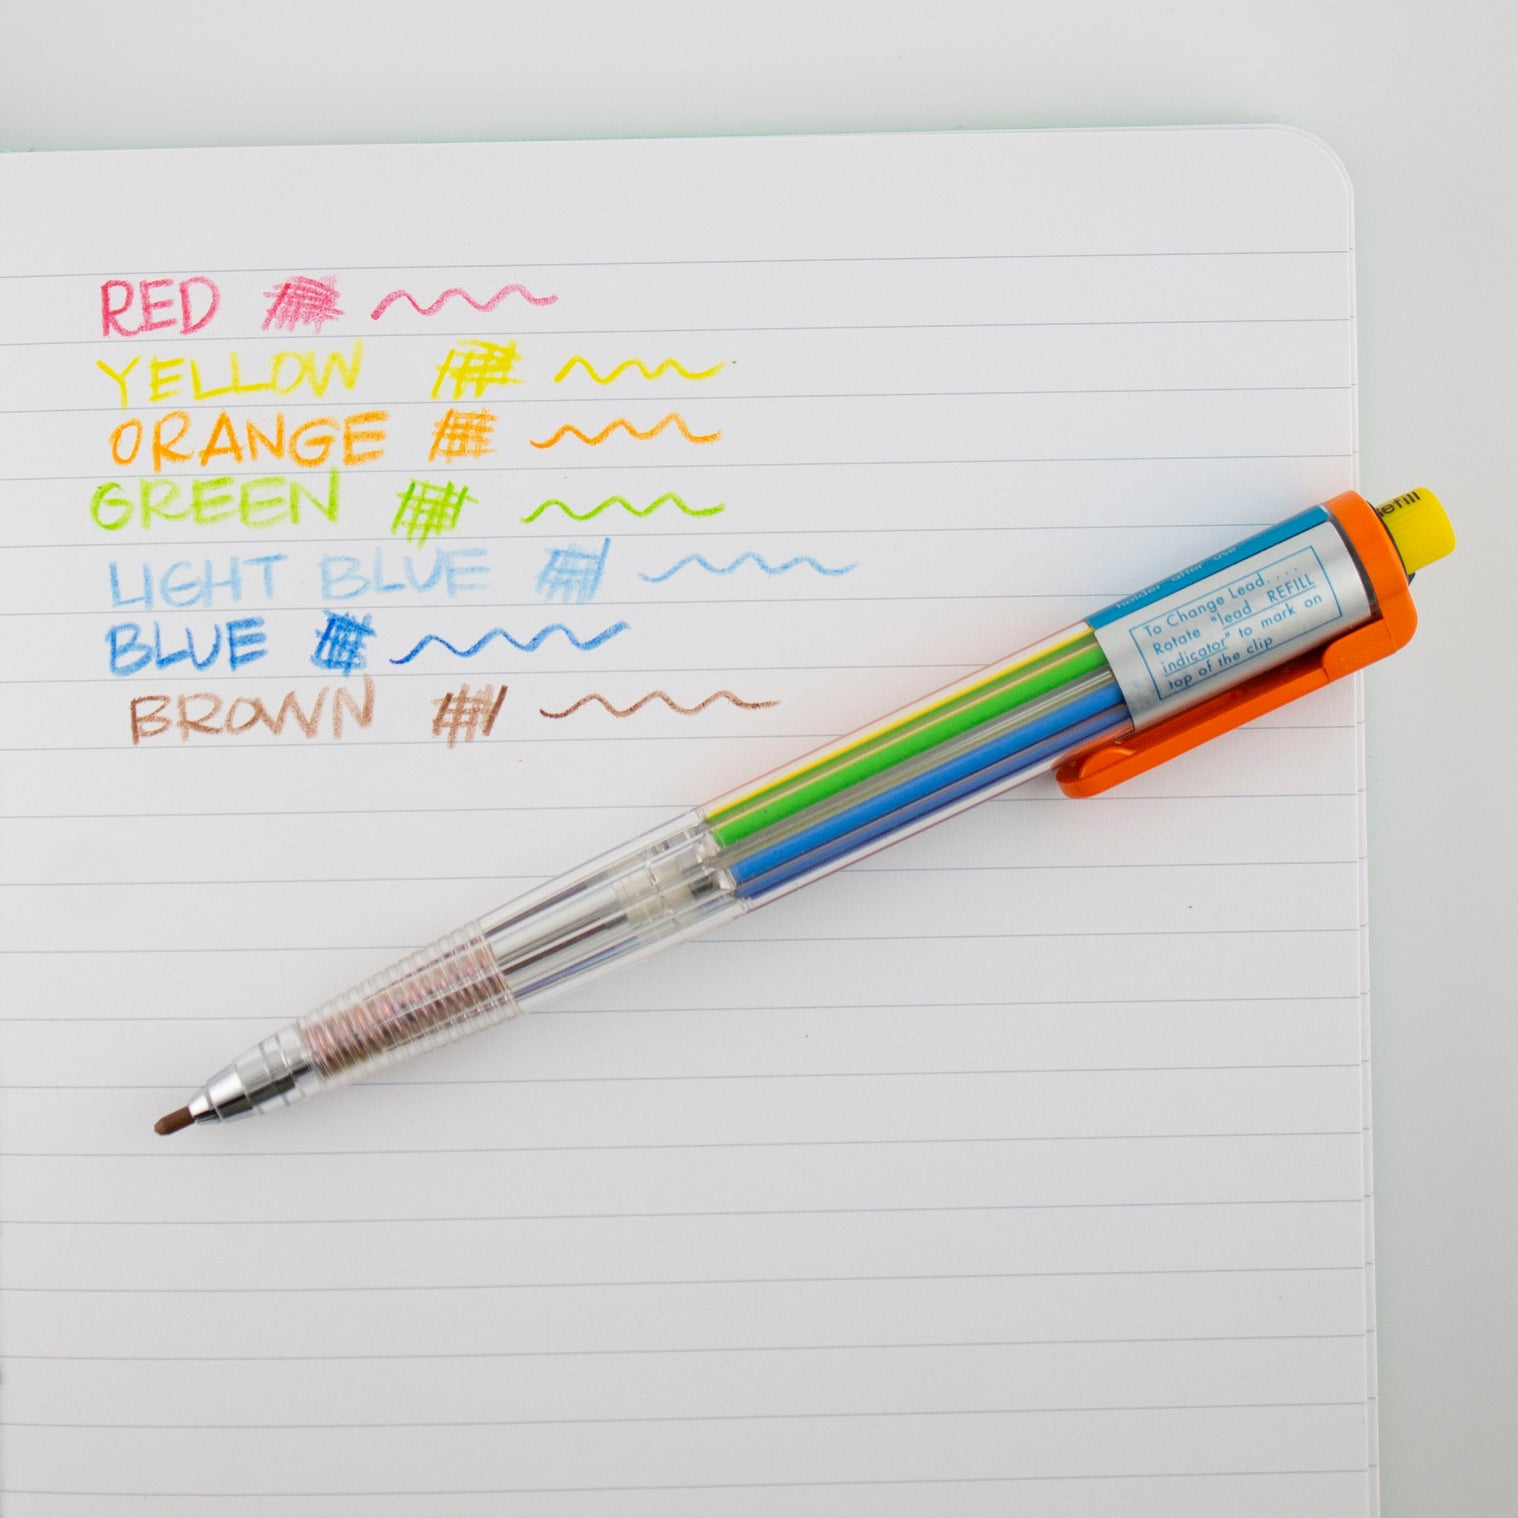 RED
YELLOW
ORANGE
GREEN
LIGHT BLUE
BLUE
BROWN
Refill
holder after use
To Change Lead....
Rotate "lead REFILL
indicator" to mark on
top of the clip